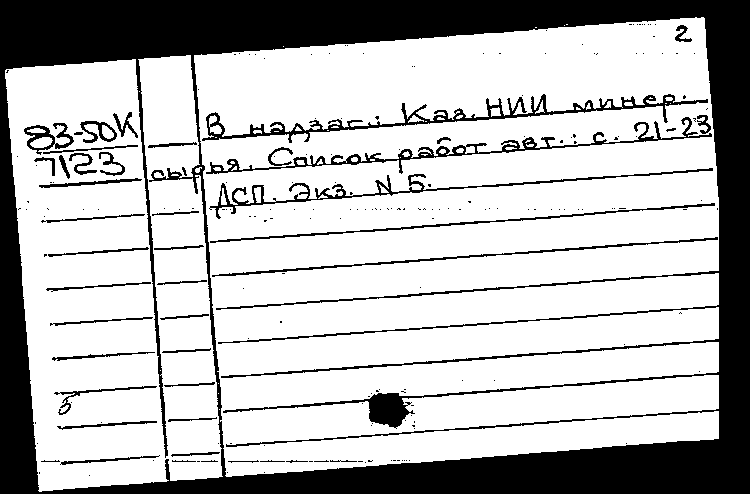 2
83-50К В надзаг.: Каз. НИИ минер.
7123 сырья. Список работ авт.: с. 21-23
ДСП. Экз. N 5.
5